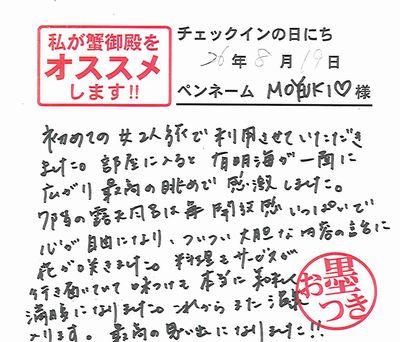 私が蟹御殿を
オススメ
します!!
チェックインの日にち
26年8月19日
ペンネーム MOYUKI♡様
初めての女2人旅で利用させていただき
ました。部屋に入ると有明海が一面に
広がり最高の眺めで感激しました。
7階の露天風呂は無開放感いっぱいで
心が自由になり、ついつい大胆な内容の話に
花が咲きました。料理もサービスが
行き届いていて味つけも本当に美味しく
満足になりました。これからまた
ります。最高の思い出になりました!!
お墨
つき